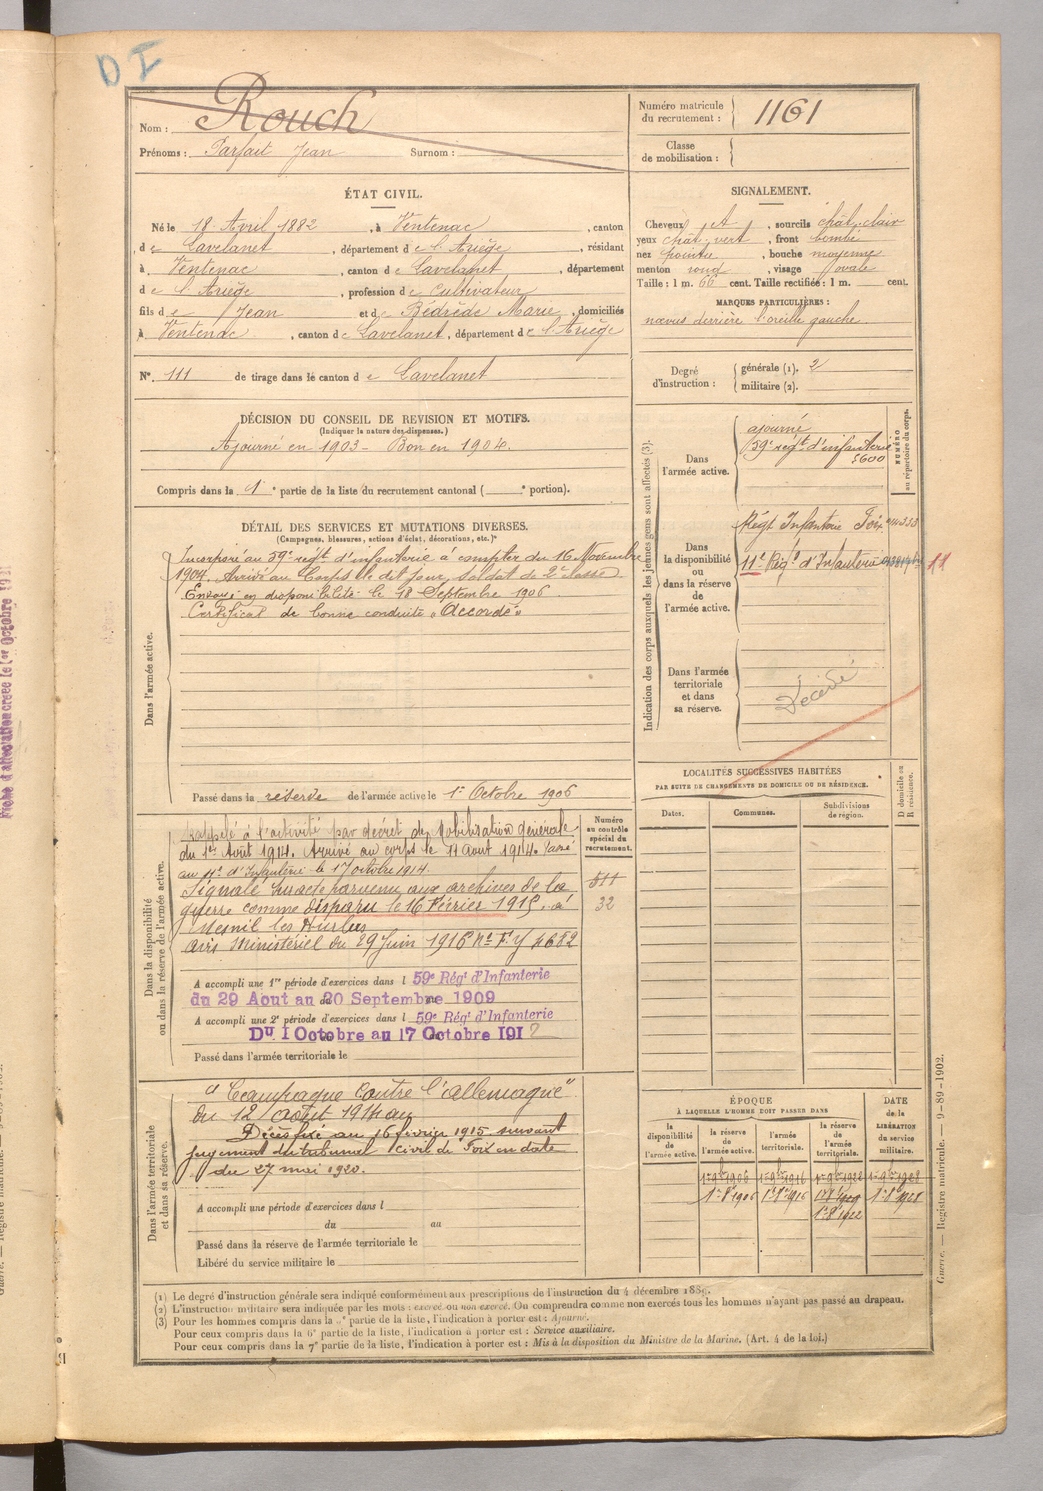 D I
Nom : Rouch
Prénoms : Parfait Jean Surnom :
Numéro matricule du recrutement : 1161
Classe de mobilisation :
ÉTAT CIVIL.
Né le 18 Avril 1882, à Ventenac, canton
de Lavelanet, département de l'Ariège, résidant
à Ventenac, canton de Lavelanet, département
de l'Ariège, profession de Cultivateur
fils de Jean et de Bédrède Marie, domiciliés
à Ventenac, canton de Lavelanet, département de l'Ariège
N° 111 de tirage dans le canton de Lavelanet
SIGNALEMENT.
Cheveux et, sourcils chât. clair
yeux chât. vert, front bombé
nez pointu, bouche moyenne
menton rond, visage ovale
Taille : 1 m. 66 cent. Taille rectifiée : 1 m. cent.
MARQUES PARTICULIÈRES :
nævus derrière l'oreille gauche
Degré d'instruction : générale (1). 2
militaire (2).
DÉCISION DU CONSEIL DE REVISION ET MOTIFS.
(Indiquer la nature des dispenses.)
Ajourné en 1903 - Bon en 1904.
Compris dans la 1e partie de la liste du recrutement cantonal ( e portion).
DÉTAIL DES SERVICES ET MUTATIONS DIVERSES.
(Campagnes, blessures, actions d'éclat, décorations, etc.)
Dans l'armée active.
Incorporé au 59e régt d'infanterie à compter du 16 Novembre
1904. Arrivé au Corps le dit jour, soldat de 2e classe
Envoyé en disponibilité le 18 Septembre 1906
Certificat de bonne conduite "Accordé"
Passé dans la réserve de l'armée active le 1er Octobre 1906
Indication des corps auxquels les jeunes gens sont affectés (3).
NUMÉRO au répertoire du corps.
Dans l'armée active.
ajourné
59e régt d'infanterie
5600
Dans la disponibilité ou dans la réserve de l'armée active.
Régt Infanterie Foix
11e Régt d'Infanterie
11
Dans l'armée territoriale et dans sa réserve.
Décédé
LOCALITÉS SUCCESSIVES HABITÉES
PAR SUITE DE CHANGEMENTS DE DOMICILE OU DE RÉSIDENCE.
Dates. Communes. Subdivisions de région. D domicile ou R résidence.
Dans la disponibilité ou dans la réserve de l'armée active.
Numéro au contrôle spécial du recrutement.
511
32
Rappelé à l'activité par décret de Mobilisation générale
du 1er Août 1914. Arrivé au corps le 11 Aout 1914. Passé
au 11e d'Infanterie le 17 octobre 1914.
Signalé sur acte parvenu aux archives de la
guerre comme disparu le 16 Février 1915 à
Mesnil les Hurlus
avis Ministériel du 29 Juin 1916 N° F.Y 4682
A accompli une 1re période d'exercices dans l 59e Régt d'Infanterie
du 29 Aout au 20 Septembre 1909
A accompli une 2e période d'exercices dans l 59e Régt d'Infanterie
Du 1 Octobre au 17 Octobre 1912
Passé dans l'armée territoriale le
Dans l'armée territoriale et dans sa réserve.
"Campagne contre l'Allemagne"
du 12 Août 1914 au
Décès fixé au 16 février 1915 suivant
jugement du tribunal civil de Foix en date
du 27 mai 1920.
A accompli une période d'exercices dans l
du au
Passé dans la réserve de l'armée territoriale le
Libéré du service militaire le
ÉPOQUE
À LAQUELLE L'HOMME DOIT PASSER DANS
la disponibilité de l'armée active. la réserve de l'armée active. l'armée territoriale. la réserve de l'armée territoriale. DATE de la LIBÉRATION du service militaire.
1er 9bre 1906 1er 9bre 1916 1er 9bre 1922 1er 9bre 1928
1er 8bre 1906
1er 8bre 1922
(1) Le degré d'instruction générale sera indiqué conformément aux prescriptions de l'instruction du 4 décembre 1889.
(2) L'instruction militaire sera indiquée par les mots : exercé ou non exercé. On comprendra comme non exercés tous les hommes n'ayant pas passé au drapeau.
(3) Pour les hommes compris dans la 2e partie de la liste, l'indication à porter est : Ajourné.
Pour ceux compris dans la 6e partie de la liste, l'indication à porter est : Service auxiliaire.
Pour ceux compris dans la 7e partie de la liste, l'indication à porter est : Mis à la disposition du Ministre de la Marine. (Art. 4 de la loi.)
Guerre. — Registre matricule. — 9-89-1902.